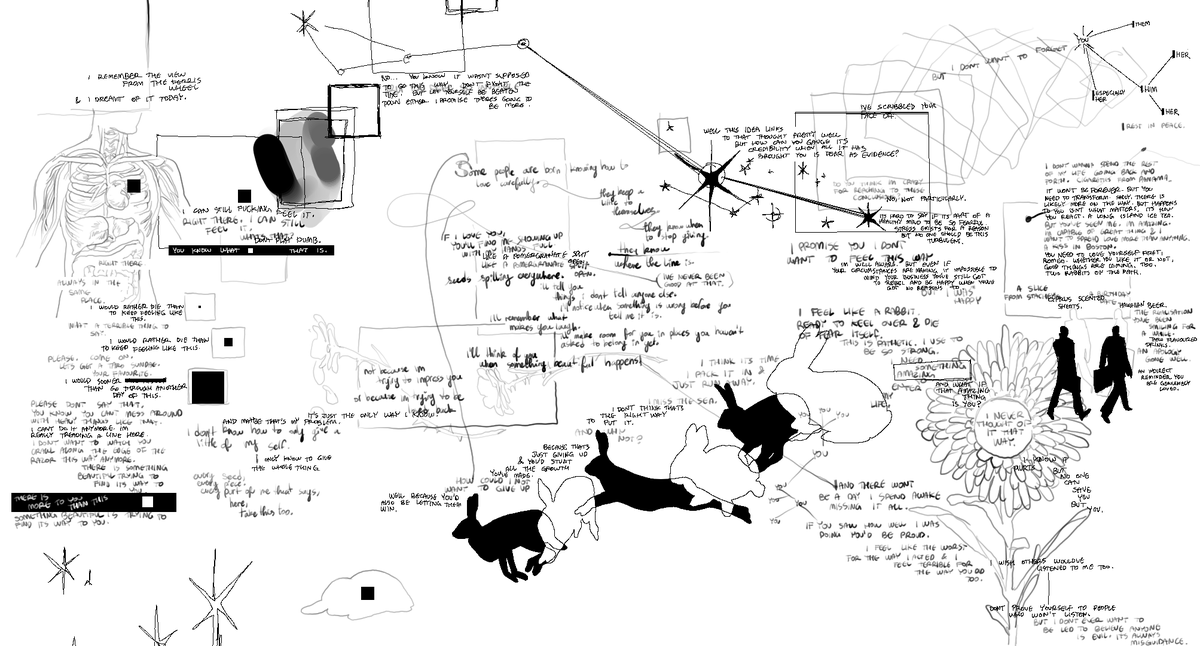 I REMEMBER THE VIEW
FROM THE FERRIS
WHEEL
& I DREAMT OF IT TODAY.
I CAN STILL FUCKING FEEL IT.
RIGHT THERE. I CAN STILL
FEEL IT.
WHAT'S THAT?
DON'T PLAY DUMB.
YOU KNOW WHAT THAT IS.
RIGHT THERE
ALWAYS IN THE
SAME
PLACE.
I WOULD RATHER DIE THAN
TO KEEP FEELING LIKE
THIS.
WHAT A TERRIBLE THING TO
SAY.
I WOULD RATHER DIE THAN
TO KEEP FEELING LIKE THIS.
PLEASE. COME ON.
YOUR FAVOURITE.
I WOULD SOONER
THAN GO THROUGH ANOTHER
DAY OF THIS.
PLEASE DON'T SAY THAT.
YOU KNOW YOU CAN'T MESS AROUND
WITH HEAVY THINGS LIKE THAT.
I CAN'T DO IT ANYMORE. I'M
REALLY TREADING A LINE HERE.
I DON'T WANT TO WATCH YOU
CRAWL ALONG THE EDGE OF THE
RAZOR THIS WAY ANYMORE.
THERE IS SOMETHING
BEAUTIFUL TRYING TO
FIND ITS WAY TO
YOU.
THERE IS
MORE TO YOU
THAN THIS
SOMETHING BEAUTIFUL IS TRYING TO
FIND ITS WAY TO YOU.
NO... YOU KNOW IT WASN'T SUPPOSED
TO GO THIS WAY. DON'T FIGHT THE
TIDE. BUT LET YOURSELF BE BEATEN
DOWN EITHER. I PROMISE THERE'S GOING TO
BE MORE.
Some people are born knowing how to
love carefully.
they keep a
little to
themselves.
they know when
to stop giving.
they know
where the line is.
I'VE NEVER BEEN
GOOD AT THAT.
IF I LOVE YOU,
YOU'LL FIND ME SHOWING UP
WITH HANDS FULL
LIKE A POMEGRANATE SPLIT
OPEN.
seeds spilling everywhere.
i'll tell you
things i don't tell anyone else.
i'll notice when something is wrong before you
tell me it is.
i'll remember what
makes you laugh.
i'll make room for you in places you haven't
asked to belong in yet.
i'll think of you
when something beautiful happens!
not because im
trying to impress you
or because im trying to be
IT'S JUST THE ONLY WAY I KNOW.
AND MAYBE THAT'S MY PROBLEM.
i don't know how to only give a
little of my self.
I ONLY KNOW TO GIVE
THE WHOLE THING.
every seed,
every piece,
every part of me that says,
here,
take this too.
WELL THIS IDEA LINKS
TO THAT THOUGHT PRETTY WELL
BUT HOW CAN YOU GAUGE IT'S
CREDIBILITY WHEN ALL IT HAS
BROUGHT YOU IS FEAR AS EVIDENCE?
I'VE SCRIBBLED YOUR
FACE OFF.
NO, NOT PARTICULARLY.
BUT I DON'T WANT TO FORGET
YOU
THEM
HER
ESPECIALLY
HER
HER
REST IN PEACE.
I PROMISE YOU I DON'T
WANT TO FEEL THIS WAY
BUT I WAS
HAPPY
I FEEL LIKE A RABBIT.
READY TO KEEL OVER & DIE
OF FEAR ITSELF.
THIS IS PATHETIC. I USE TO
BE SO STRONG.
NEED
SOMETHING
AMAZING
ENTER
MY
LIFE.
AND WHAT IF
THAT AMAZING
THING
IS YOU?
I NEVER
THOUGHT OF
IT THAT
WAY.
I THINK IT'S TIME
I PACK IT IN &
JUST RUN AWAY.
I MISS THE SEA.
I DON'T THINK THAT'S
THE RIGHT WAY
TO PUT IT.
AND WHY
NOT?
BECAUSE THAT'S
JUST GIVING UP
& YOU'D STUNT
ALL THE GROWTH
YOU'VE MADE.
HOW COULD I NOT
WANT TO GIVE UP
WELL BECAUSE YOU'D
ALSO BE LETTING THEM
WIN.
YOU
YOU
YOU
YOU
AND THERE WON'T
BE A DAY I SPEND AWAKE
MISSING IT ALL.
IF YOU SAW HOW WELL I WAS
DOING YOU'D BE PROUD.
I FEEL LIKE THE WORST
FOR THE WAY I ACTED & I
FEEL TERRIBLE FOR
THE WAY YOU DO
TOO.
I DON'T WANNA SPEND THE REST
OF MY LIFE GOING BACK AND
FORTH.
IT WON'T BE FOREVER. BUT YOU
NEED TO TRANSFORM SAFELY. THERE IS
LIKELY MORE ON THE WAY. BUT HAPPENS
TO YOU ISN'T WHAT MATTERS, IT'S HOW
YOU REACT. A LONG ISLAND ICE TEA.
BUT YOU'VE SEEN ME. I'M AMAZING.
I'M CAPABLE OF GREAT THING & I
WANT TO SPREAD LOVE MORE THAN ANYTHING.
A KISS IN BOSTON.
YOU NEED TO LOVE YOURSELF FIRST,
ROMEO. WHETHER YOU LIKE IT OR NOT,
GOOD THINGS ARE COMING, TOO.
TWO RABBITS ON THE PATH.
A SLICE
CYPRUS SCENTED
SHEETS.
A BIRTHDAY
HAWAIIAN BEER.
THE REALISATION
YOU'VE BEEN
SMILING FOR
A WHILE.
AN APOLOGY
GONE WELL.
REMINDER YOU
ARE GENUINELY
LOVED.
I KNOW IT
HURTS.
BUT
NO ONE
CAN
SAVE
YOU
BUT YOU.
I WISH OTHERS WOULD'VE
LISTENED TO ME TOO.
DON'T PROVE YOURSELF TO PEOPLE
WHO WON'T LISTEN.
BUT I DON'T EVER WANT TO
BE LED TO BELIEVE ANYONE
IS EVIL. IT'S ALWAYS
MISGUIDANCE.